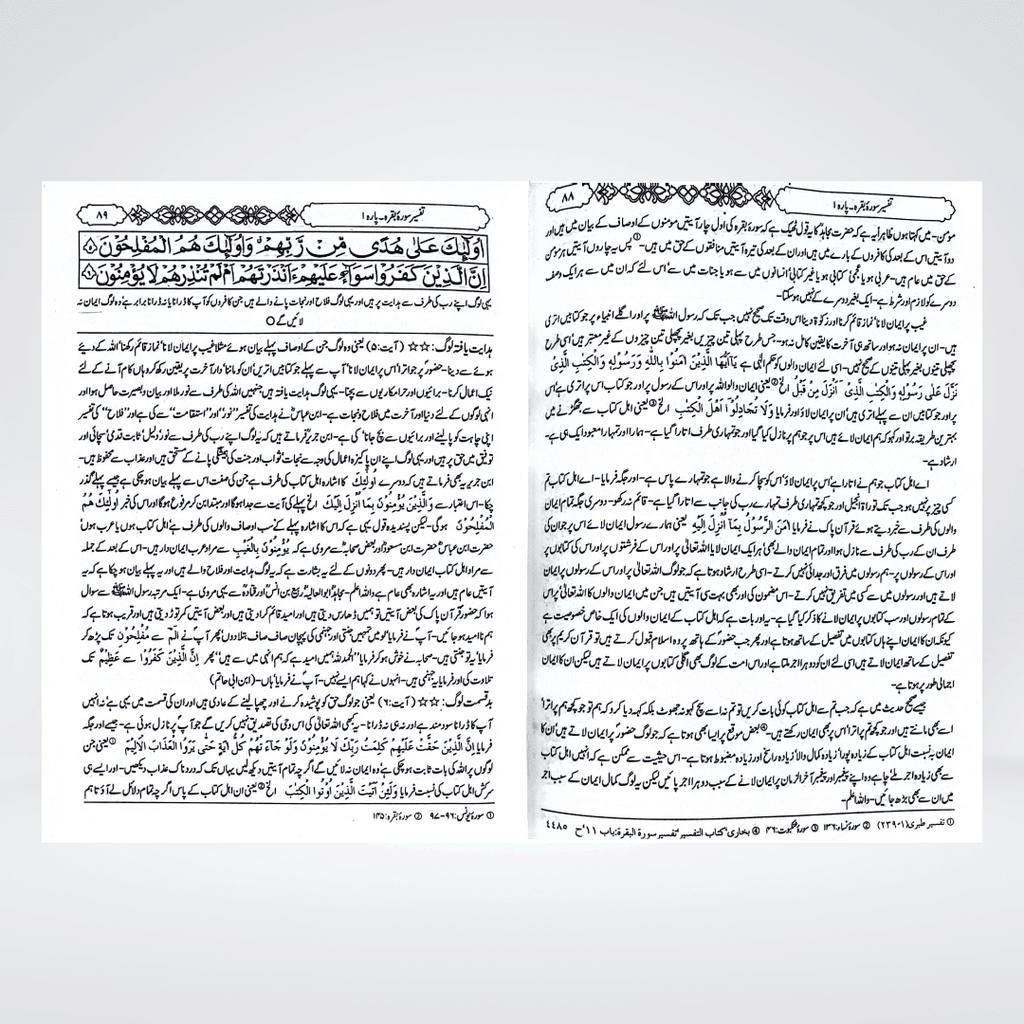 تفسیر سورۂ بقرہ۔ پارہ ۱
۸۸
مومن۔ میں کہتا ہوں ظاہر یہ ہے کہ حضرت مجاہدؒ کا یہ قول ٹھیک ہے کہ سورۂ بقرہ کی اول چار آیتیں مومنوں کے اوصاف کے بیان میں ہیں اور
دو آیتیں اس کے بعد کی کافروں کے بارے میں ہیں اور ان کے بعد کی تیرہ آیتیں منافقوں کے حق میں ہیں۔① پس یہ چاروں آیتیں ہر مومن
کے حق میں عام ہیں۔ عربی ہو یا عجمی، کتابی ہو یا غیر کتابی، انسانوں میں سے ہو یا جنات میں سے، اس لئے کہ ان میں سے ہر ایک وصف
دوسرے کو لازم اور شرط ہے۔ ایک بغیر دوسرے کے نہیں ہو سکتا۔
غیب پر ایمان لانا، نماز قائم کرنا اور زکوٰۃ دینا اس وقت تک صحیح نہیں جب تک کہ رسول اللہ ﷺ پر اور اگلے انبیاء پر جو کتابیں اتری
ہیں۔ ان پر ایمان نہ ہو اور ساتھ ہی آخرت کا یقین کامل نہ ہو۔ جس طرح پہلی تین چیزیں بغیر پچھلی تین چیزوں کے غیر معتبر ہیں اسی طرح
پچھلی تینوں بغیر پہلی تینوں کے صحیح نہیں۔ اسی لئے ایمان والوں کو حکم الٰہی ہے یٰٓاَیُّهَا الَّذِیْنَ اٰمَنُوْا بِاللّٰهِ وَرَسُوْلِهٖ وَالْکِتٰبِ الَّذِیْ
نَزَّلَ عَلٰی رَسُوْلِهٖ وَالْکِتٰبِ الَّذِیْٓ اَنْزَلَ مِنْ قَبْلُ الخ② یعنی ایمان والو اللہ پر اور اس کے رسول پر اور جو کتاب اس پر اتری ہے اس
پر اور جو کتابیں ان سے پہلے اتری ہیں ان پر ایمان لاؤ اور فرمایا وَلَا تُجَادِلُوْٓا اَهْلَ الْکِتٰبِ الخ③ یعنی اہل کتاب سے جھگڑنے میں
بہترین طریقہ برتو اور کہو کہ ہم ایمان لائے ہیں اس پر جو ہم پر نازل کیا گیا اور جو تمہاری طرف اتارا گیا ہے۔ ہمارا اور تمہارا معبود ایک ہی ہے۔
ارشاد ہے۔
اے اہل کتاب جو ہم نے اتارا ہے اس پر ایمان لاؤ، اس کو سچا کرنے والا ہے جو تمہارے پاس ہے۔ اور جگہ فرمایا۔ اے اہل کتاب تم
کسی چیز پر نہیں ہو جب تک توراۃ، انجیل اور جو کچھ تمہاری طرف تمہارے رب کی جانب سے اتارا گیا ہے۔ قائم نہ رکھو۔ دوسری جگہ تمام ایمان
والوں کی طرف سے خبر دیتے ہوئے قرآن پاک نے فرمایا اٰمَنَ الرَّسُوْلُ بِمَآ اُنْزِلَ اِلَیْهِ یعنی ہمارے رسول ایمان لائے اس پر جو ان کی
طرف ان کے رب کی طرف سے نازل ہوا اور تمام ایمان والے بھی، ہر ایک ایمان لایا اللہ تعالیٰ پر اور اس کے فرشتوں پر اور اس کی کتابوں پر
اور اس کے رسولوں پر۔ ہم رسولوں میں فرق اور جدائی نہیں کرتے۔ اسی طرح ارشاد ہوتا ہے کہ جو لوگ اللہ تعالیٰ پر اور اس کے رسولوں پر ایمان
لاتے ہیں اور رسولوں میں سے کسی میں تفریق نہیں کرتے۔ اس مضمون کی اور بھی بہت سی آیتیں ہیں جن میں ایمان والوں کا اللہ تعالیٰ پر اس
کے تمام رسولوں اور سب کتابوں پر ایمان لانے کا ذکر کیا گیا ہے۔ یہ اور بات ہے کہ اہل کتاب کے ایمان والوں کی ایک خاص خصوصیت ہے
کیونکہ ان کا ایمان اپنے ہاں کتابوں میں تفصیل کے ساتھ ہوتا ہے اور پھر جب حضورؐ کے ہاتھ پر وہ اسلام قبول کرتے ہیں تو قرآن کریم پر بھی
تفصیل کے ساتھ ایمان لاتے ہیں اسی لئے ان کو دوہرا اجر ملتا ہے اور اس امت کے لوگ بھی اگلی کتابوں پر ایمان لاتے ہیں لیکن ان کا ایمان
اجمالی طور پر ہوتا ہے۔
جیسے صحیح حدیث میں ہے کہ جب تم سے اہل کتاب کوئی بات کریں تو تم نہ اسے سچ کہو نہ جھوٹ بلکہ کہہ دیا کرو کہ ہم تو جو کچھ ہم پر اترا
اسے بھی مانتے ہیں اور جو کچھ تم پر اترا اس پر بھی ایمان رکھتے ہیں۔④ بعض موقع پر ایسا بھی ہوتا ہے کہ جو لوگ حضورؐ پر ایمان لاتے ہیں، ان کا
ایمان بہ نسبت اہل کتاب کے زیادہ پورا، زیادہ کمال والا، زیادہ راسخ اور زیادہ مضبوط ہوتا ہے۔ اس حیثیت سے ممکن ہے کہ انہیں اہل کتاب
سے بھی زیادہ اجر ملے، چاہے وہ اپنے پیغمبر اور پیغمبر آخر الزمان پر ایمان لانے کے سبب دوہرا اجر پائیں لیکن یہ لوگ کمال ایمان کے سبب اجر
میں ان سے بھی بڑھ جائیں۔ واللہ اعلم۔
① تفسیر طبری (۱-۲۳۹) ② سورۂ نساء: ۱۳۶ ③ سورۂ عنکبوت: ۴۶ ④ بخاری، کتاب التفسیر، تفسیر سورۃ البقرۃ: باب ۱۱، ح ۴۴۸۵
تفسیر سورۂ بقرہ۔ پارہ ۱
۸۹
اُولٰٓئِكَ عَلٰى هُدًى مِّنْ رَّبِّهِمْ وَاُولٰٓئِكَ هُمُ الْمُفْلِحُوْنَ ۵
اِنَّ الَّذِيْنَ كَفَرُوْا سَوَآءٌ عَلَيْهِمْ ءَاَنْذَرْتَهُمْ اَمْ لَمْ تُنْذِرْهُمْ لَا يُؤْمِنُوْنَ ۶
یہی لوگ اپنے رب کی طرف سے ہدایت پر ہیں اور یہی لوگ فلاح اور نجات پانے والے ہیں جن کافروں کو آپ کا ڈرانا یا نہ ڈرانا برابر ہے، وہ لوگ ایمان نہ
لائیں گے ○
ہدایت یافتہ لوگ: ☆☆ (آیت: ۵) یعنی وہ لوگ جن کے اوصاف پہلے بیان ہوئے مثلاً غیب پر ایمان لانا، نماز قائم رکھنا، اللہ کے دیئے
ہوئے سے دینا، حضورؐ پر جو اترا، اس پر ایمان لانا، آپ سے پہلے جو کتابیں اتریں ان کو ماننا، دار آخرت پر یقین رکھ کر وہاں کام آنے کے لئے
نیک اعمال کرنا۔ برائیوں اور حرام کاریوں سے بچنا۔ یہی لوگ ہدایت یافتہ ہیں جنہیں اللہ کی طرف سے نور ملا اور بیان و بصیرت حاصل ہوا اور
انہی لوگوں کے لئے دنیا اور آخرت میں فلاح و نجات ہے۔ ابن عباسؓ نے ہدایت کی تفسیر ”نور“ اور ”استقامت“ سے کی ہے اور ”فلاح“ کی تفسیر
اپنی چاہت کو پا لینے اور برائیوں سے بچ جانا، کی ہے۔ ابن جریرؒ فرماتے ہیں کہ یہ لوگ اپنے رب کی طرف سے نور، دلیل، ثابت قدمی، سچائی اور
توفیق میں حق پر ہیں اور یہی لوگ اپنے ان پاکیزہ اعمال کی وجہ سے نجات، ثواب اور جنت کی ہمیشگی پانے کے مستحق ہیں اور عذاب سے محفوظ ہیں۔
ابن جریر یہ بھی فرماتے ہیں کہ دوسرے اُولٰٓئِکَ کا اشارہ اہل کتاب کی طرف ہے جن کی صفت اس سے پہلے بیان ہو چکی ہے جیسے پہلے گذر
چکا۔ اس اعتبار سے وَالَّذِیْنَ یُؤْمِنُوْنَ بِمَآ اُنْزِلَ اِلَیْکَ الخ، پہلے کی آیت سے جدا ہوگا اور مبتدا بن کر مرفوع ہوگا اور اس کی خبر اُولٰٓئِکَ هُمُ
الْمُفْلِحُوْنَ ہوگی۔ لیکن پسندیدہ قول یہی ہے کہ اس کا اشارہ پہلے کے سب اوصاف والوں کی طرف ہے، اہل کتاب ہوں یا عرب ہوں،
حضرت ابن عباسؓ، حضرت ابن مسعودؓ اور بعض صحابہؓ سے مروی ہے کہ یُؤْمِنُوْنَ بِالْغَیْبِ سے مراد عرب ایمان دار ہیں۔ اس کے بعد کے جملہ
سے مراد اہل کتاب ایمان دار ہیں۔ پھر دونوں کے لئے یہ بشارت ہے کہ یہ لوگ ہدایت اور فلاح والے ہیں اور یہ پہلے بیان ہو چکا ہے کہ یہ
آیتیں عام ہیں اور یہ اشارہ بھی عام ہے، واللہ اعلم۔ مجاہدؒ، ابوالعالیہؒ، ربیع بن انسؒ اور قتادہؒ سے یہی مروی ہے۔ ایک مرتبہ رسول اللہ ﷺ سے سوال
ہوا کہ حضورؐ قرآن پاک کی بعض آیتیں تو ہمیں ڈھارس دیتی ہیں اور امید قائم کرا دیتی ہیں اور بعض آیتیں کمر توڑ دیتی ہیں اور قریب ہوتا ہے کہ
ہم نا امید ہو جائیں۔ آپؐ نے فرمایا، لو میں تمہیں جنتی اور جہنمی کی پہچان صاف صاف بتلا دوں، پھر آپؐ نے الٓمّٓ سے مُفْلِحُوْنَ تک پڑھ کر
فرمایا، یہ تو جنتی ہیں۔ صحابہ نے خوش ہو کر فرمایا، ”الحمد للہ ہمیں امید ہے کہ ہم انہی میں سے ہیں“، پھر اِنَّ الَّذِیْنَ کَفَرُوْا سے عَظِیْمٌ تک
تلاوت کی اور فرمایا، یہ جہنمی ہیں۔ انہوں نے کہا، ہم ایسے نہیں۔ آپؐ نے فرمایا، ہاں۔ (ابن ابی حاتم)
بد قسمت لوگ: ☆☆ (آیت: ۶) یعنی جو لوگ حق کو پوشیدہ کرنے اور چھپا لینے کے عادی ہیں اور ان کی قسمت میں یہی ہے، نہ انہیں
آپ کا ڈرانا سودمند ہے اور نہ ہی نہ ڈرانا۔ یہ کبھی اللہ تعالیٰ کی اس وحی کی تصدیق نہیں کریں گے جو آپؐ پر نازل ہوئی ہے۔ جیسے اور جگہ
فرمایا اِنَّ الَّذِیْنَ حَقَّتْ عَلَیْهِمْ کَلِمَتُ رَبِّکَ لَا یُؤْمِنُوْنَ وَلَوْ جَآءَتْهُمْ کُلُّ اٰیَةٍ حَتّٰی یَرَوُا الْعَذَابَ الْاَلِیْمَ ① یعنی جن
لوگوں پر اللہ کی بات ثابت ہو چکی ہے، وہ ایمان نہ لائیں گے اگرچہ تمام آیتیں دیکھ لیں یہاں تک کہ دردناک عذاب دیکھیں۔ اور ایسے ہی
سرکش اہل کتاب کی نسبت فرمایا وَلَئِنْ اَتَیْتَ الَّذِیْنَ اُوْتُوا الْکِتٰبَ الخ② یعنی ان اہل کتاب کے پاس اگرچہ تمام دلائل لے آؤ تاہم
① سورۂ یونس: ۹۶-۹۷ ② سورۂ بقرہ: ۱۴۵